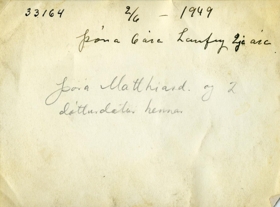 33164 2/6 - 1949
Þóra 6 ára Laufey 2ja ára
Þóra Matthíasd. og 2
dótturdætur hennar